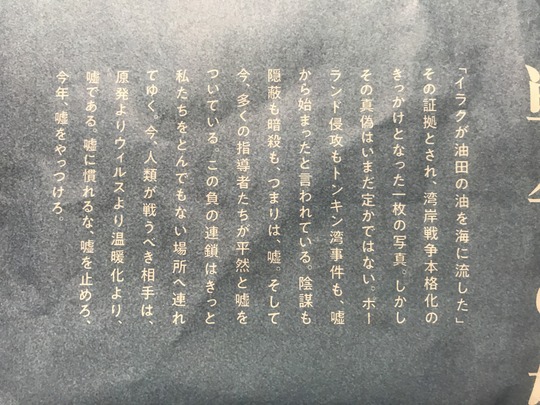 「イラクが油田の油を海に流した」
その証拠とされ、湾岸戦争本格化の
きっかけとなった一枚の写真。しかし
その真偽はいまだ定かではない。ポー
ランド侵攻もトンキン湾事件も、嘘
から始まったと言われている。陰謀も
隠蔽も暗殺も、つまりは、嘘。そして
今、多くの指導者たちが平然と嘘を
ついている。この負の連鎖はきっと
私たちをとんでもない場所へ連れ
てゆく。今、人類が戦うべき相手は、
原発よりウィルスより温暖化より、
嘘である。嘘に慣れるな、嘘を止めろ、
今年、嘘をやっつけろ。